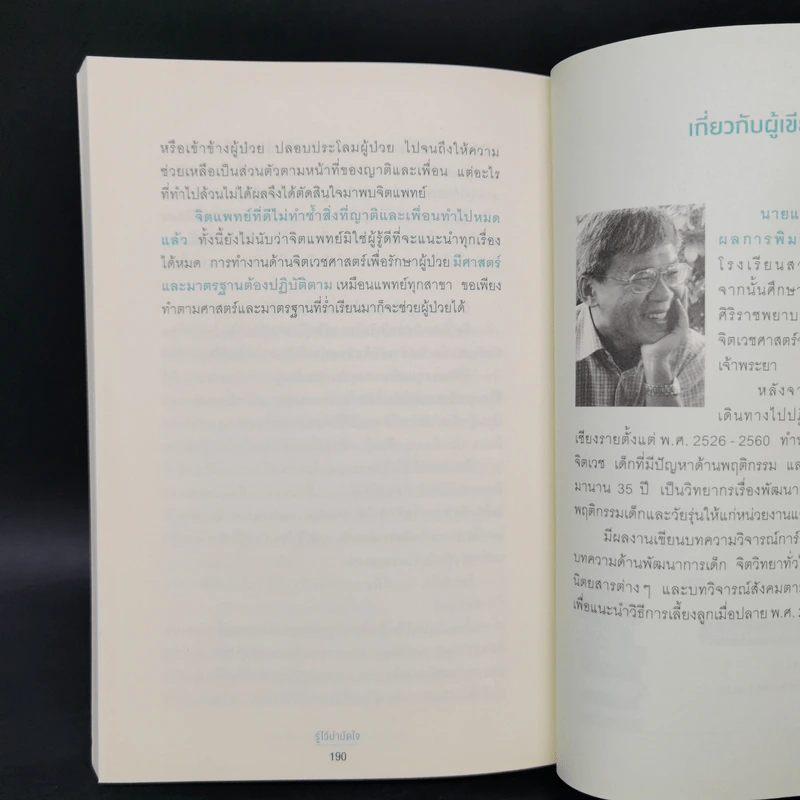 หรือเข้าข้างผู้ป่วย ปลอบประโลมผู้ป่วย ไปจนถึงให้ความ
ช่วยเหลือเป็นส่วนตัวตามหน้าที่ของญาติและเพื่อน แต่อะไร
ที่ทำไปล้วนไม่ได้ผลจึงได้ตัดสินใจมาพบจิตแพทย์
จิตแพทย์ที่ดีไม่ทำซ้ำสิ่งที่ญาติและเพื่อนทำไปหมด
แล้ว ทั้งนี้ยังไม่นับว่าจิตแพทย์มิใช่ผู้รู้ดีที่จะแนะนำทุกเรื่อง
ได้หมด การทำงานด้านจิตเวชศาสตร์เพื่อรักษาผู้ป่วย มีศาสตร์
และมาตรฐานต้องปฏิบัติตาม เหมือนแพทย์ทุกสาขา ขอเพียง
ทำตามศาสตร์และมาตรฐานที่ร่ำเรียนมาก็จะช่วยผู้ป่วยได้
รู้ไว้บำบัดใจ
190
เกี่ยวกับผู้เขีย
นายแ
ผลการพิม
โรงเรียนสา
จากนั้นศึกษา
ศิริราชพยาบ
จิตเวชศาสตร์จ
เจ้าพระยา
หลังจา
เดินทางไปปฏิ
เชียงรายตั้งแต่ พ.ศ. 2526 - 2560 ทำ
จิตเวช เด็กที่มีปัญหาด้านพฤติกรรม แล
มานาน 35 ปี เป็นวิทยากรเรื่องพัฒนา
พฤติกรรมเด็กและวัยรุ่นให้แก่หน่วยงานแ
มีผลงานเขียนบทความวิจารณ์การ์
บทความด้านพัฒนาการเด็ก จิตวิทยาทั่วไ
นิตยสารต่าง ๆ และบทวิจารณ์สังคมตา
เพื่อแนะนำวิธีการเลี้ยงลูกเมื่อปลาย พ.ศ. 2